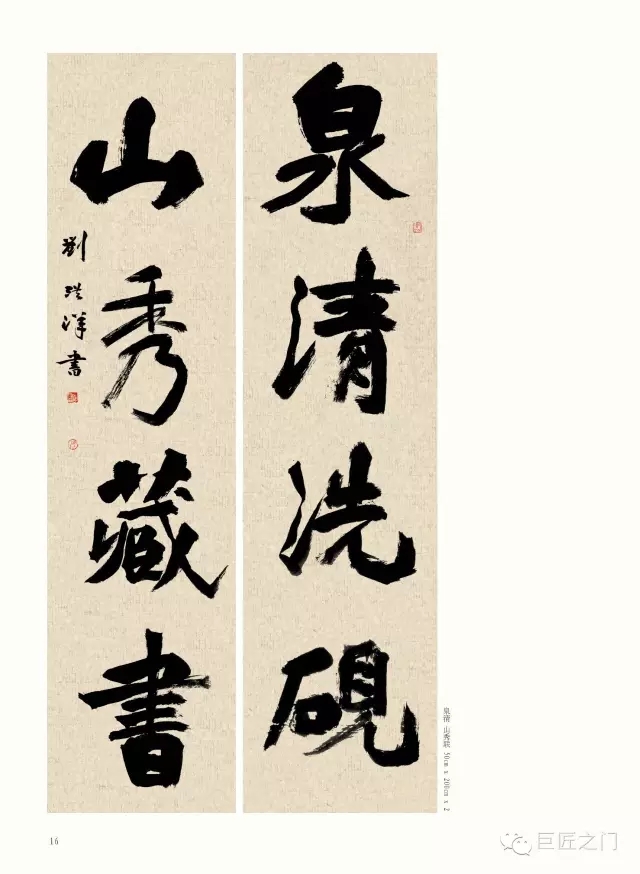 泉清洗硯
山秀藏書
劉洪洋書
泉清 山秀联 50cm x 200cm x 2
16
巨匠之门